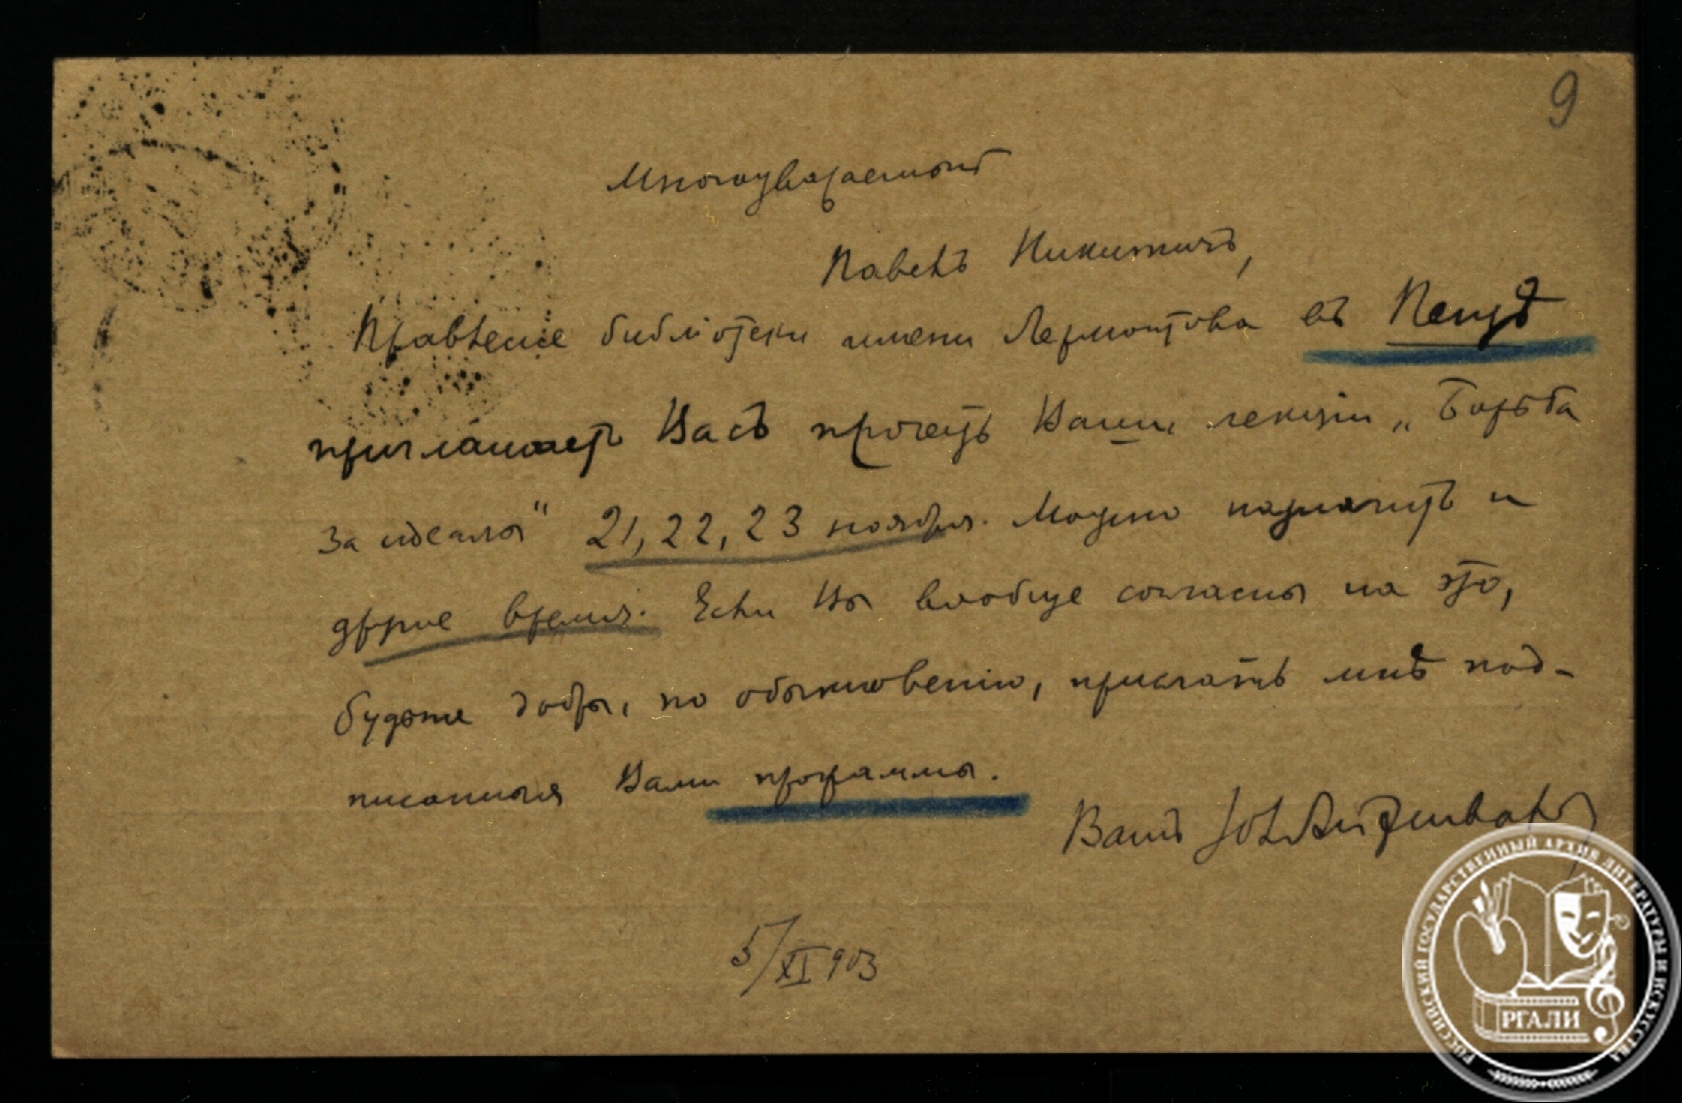 9
Многоуважаемый
Павелъ Никитичъ,
Правленіе библіотеки имени Лермонтова въ Пензѣ
приглашаетъ Васъ прочесть Ваши лекціи „Борьба
за идеалы" 21, 22, 23 ноября. Можно назначить и
другое время. Если Вы вообще согласны на это,
будьте добры, по обыкновенію, прислать мнѣ под-
писанныя Вами программы.
Вашъ
5/XI 903
РОССИЙСКИЙ ГОСУДАРСТВЕННЫЙ АРХИВ ЛИТЕРАТУРЫ И ИСКУССТВА
РГАЛИ